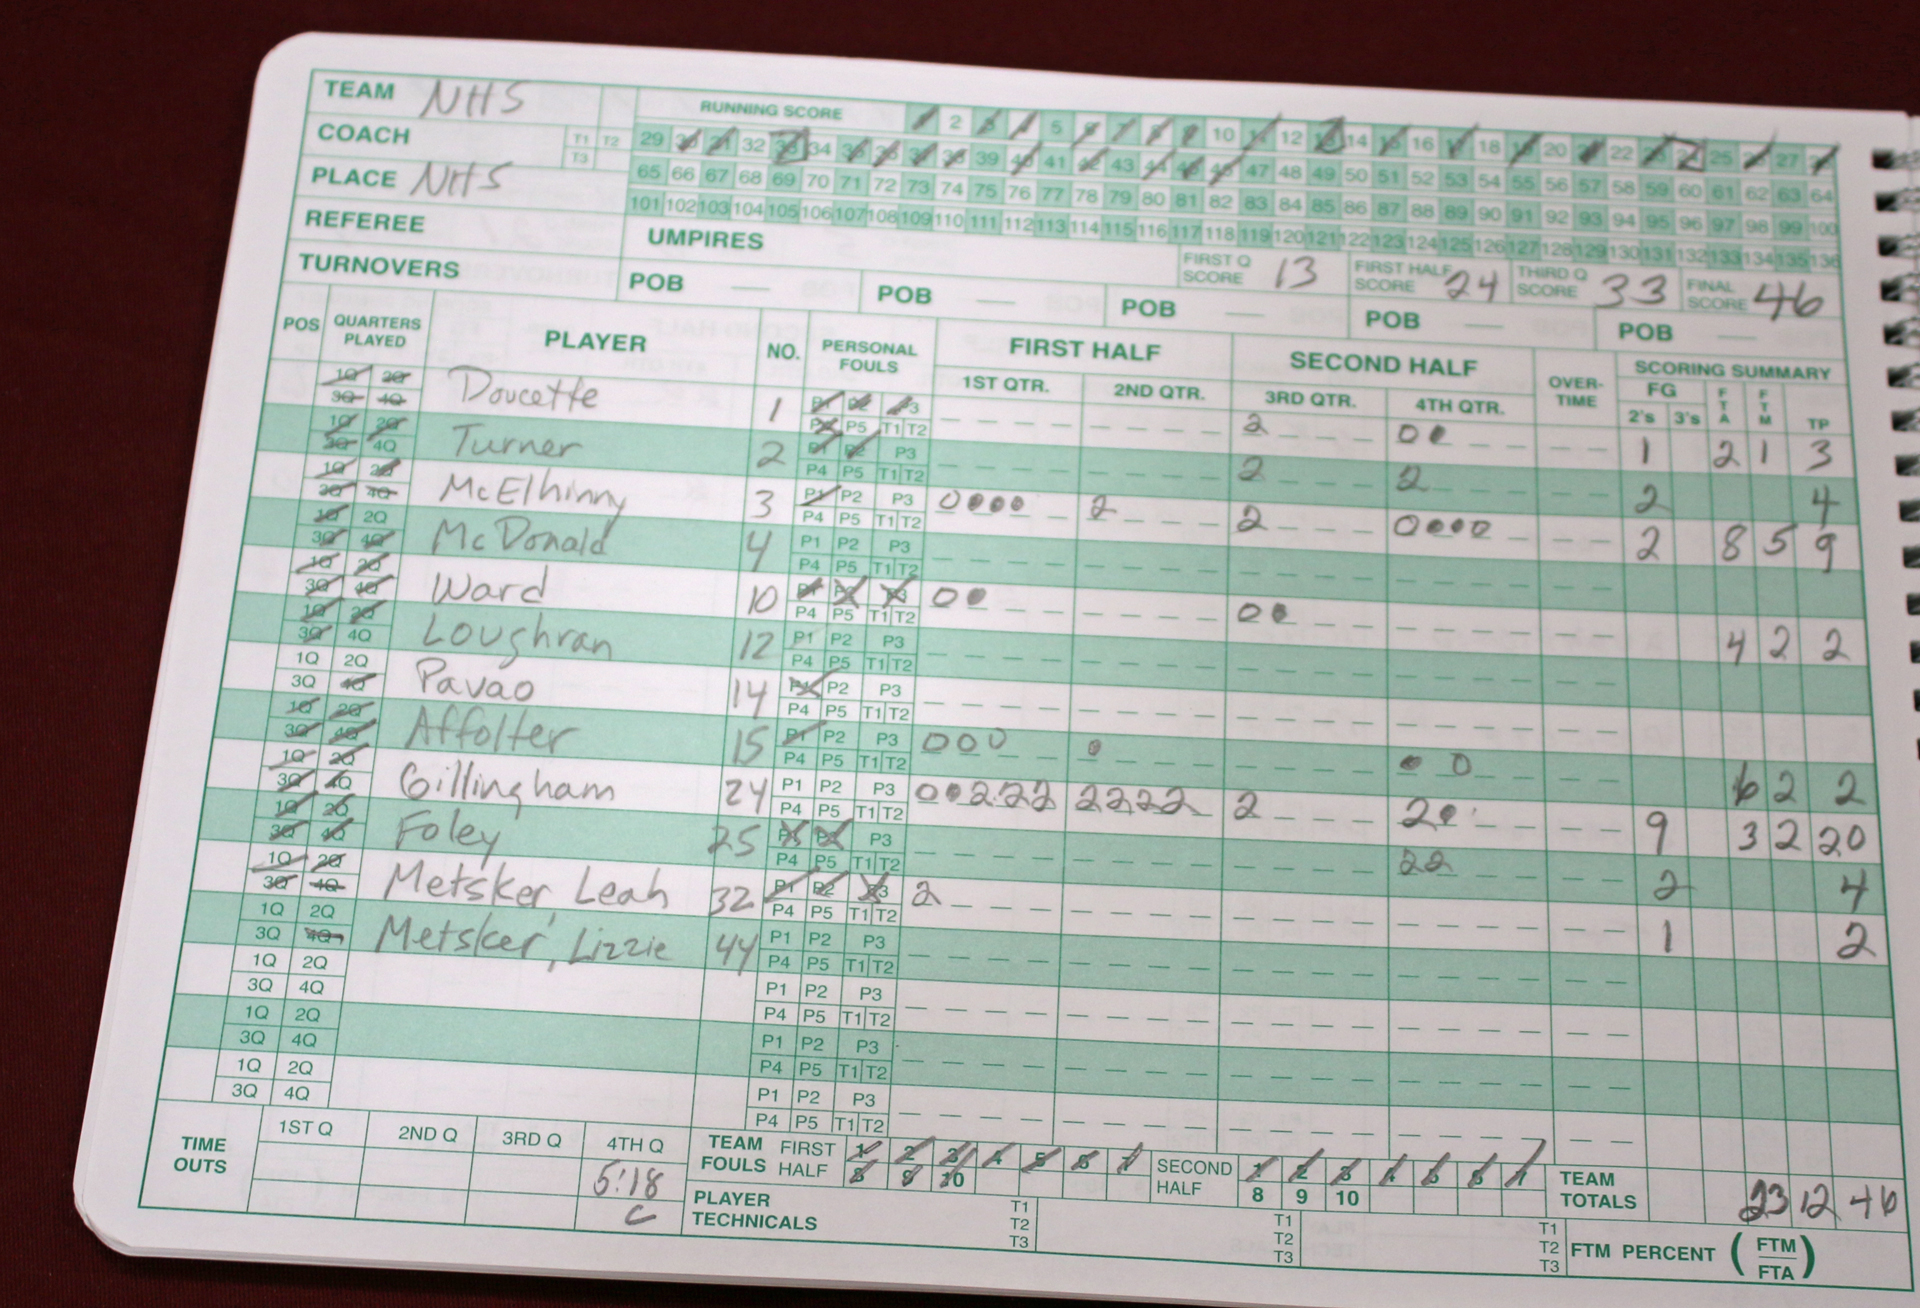 TEAM NHS RUNNING SCORE 1 2 3 4 5 6 7 8 9 10 11 12 13 14 15 16 17 18 19 20 21 22 23 24 25 26 27 28
COACH T1 T2 T3 29 30 31 32 33 34 35 36 37 38 39 40 41 42 43 44 45 46 47 48 49 50 51 52 53 54 55 56 57 58 59 60 61 62 63 64
PLACE NHS 65 66 67 68 69 70 71 72 73 74 75 76 77 78 79 80 81 82 83 84 85 86 87 88 89 90 91 92 93 94 95 96 97 98 99 100
101 102 103 104 105 106 107 108 109 110 111 112 113 114 115 116 117 118 119 120 121 122 123 124 125 126 127 128 129 130 131 132 133 134 135 136
REFEREE UMPIRES FIRST Q SCORE 13 FIRST HALF SCORE 24 THIRD Q SCORE 33 FINAL SCORE 46
TURNOVERS POB — POB — POB — POB — POB —
POS QUARTERS PLAYED PLAYER NO. PERSONAL FOULS FIRST HALF SECOND HALF OVER-TIME SCORING SUMMARY
1ST QTR. 2ND QTR. 3RD QTR. 4TH QTR. FG 2's 3's FTA FTM TP
1Q 2Q 3Q 4Q Doucette 1 P1 P2 P3 P4 P5 T1 T2 2 0● 1 2 1 3
1Q 2Q 3Q 4Q Turner 2 P1 P2 P3 P4 P5 T1 T2 2 2 2 4
1Q 2Q 3Q 4Q McElhinny 3 P1 P2 P3 P4 P5 T1 T2 0●●● 2 2 0●●● 2 8 5 9
1Q 2Q 3Q 4Q McDonald 4 P1 P2 P3 P4 P5 T1 T2
1Q 2Q 3Q 4Q Ward 10 P1 P2 P3 P4 P5 T1 T2 0● 0● 4 2 2
1Q 2Q 3Q 4Q Loughran 12 P1 P2 P3 P4 P5 T1 T2
1Q 2Q 3Q 4Q Pavao 14 P1 P2 P3 P4 P5 T1 T2
1Q 2Q 3Q 4Q Affolter 15 P1 P2 P3 P4 P5 T1 T2 000 ● ● 0 6 2 2
1Q 2Q 3Q 4Q Gillingham 24 P1 P2 P3 P4 P5 T1 T2 0●222 2222 2 2● 9 3 2 20
1Q 2Q 3Q 4Q Foley 25 P1 P2 P3 P4 P5 T1 T2 22 2 4
1Q 2Q 3Q 4Q Metsker, Leah 32 P1 P2 P3 P4 P5 T1 T2 2 1 2
1Q 2Q 3Q 4Q Metsker, Lizzie 44 P1 P2 P3 P4 P5 T1 T2
1Q 2Q 3Q 4Q P1 P2 P3 P4 P5 T1 T2
1Q 2Q 3Q 4Q P1 P2 P3 P4 P5 T1 T2
1Q 2Q 3Q 4Q P1 P2 P3 P4 P5 T1 T2
TIME OUTS 1ST Q 2ND Q 3RD Q 4TH Q 5:18 C
TEAM FOULS FIRST HALF 1 2 3 4 5 6 7 8 9 10 SECOND HALF 1 2 3 4 5 6 7 8 9 10 TEAM TOTALS 23 12 46
PLAYER TECHNICALS T1 T2 T3 T1 T2 T3 T1 T2 T3 FTM PERCENT (FTM/FTA)